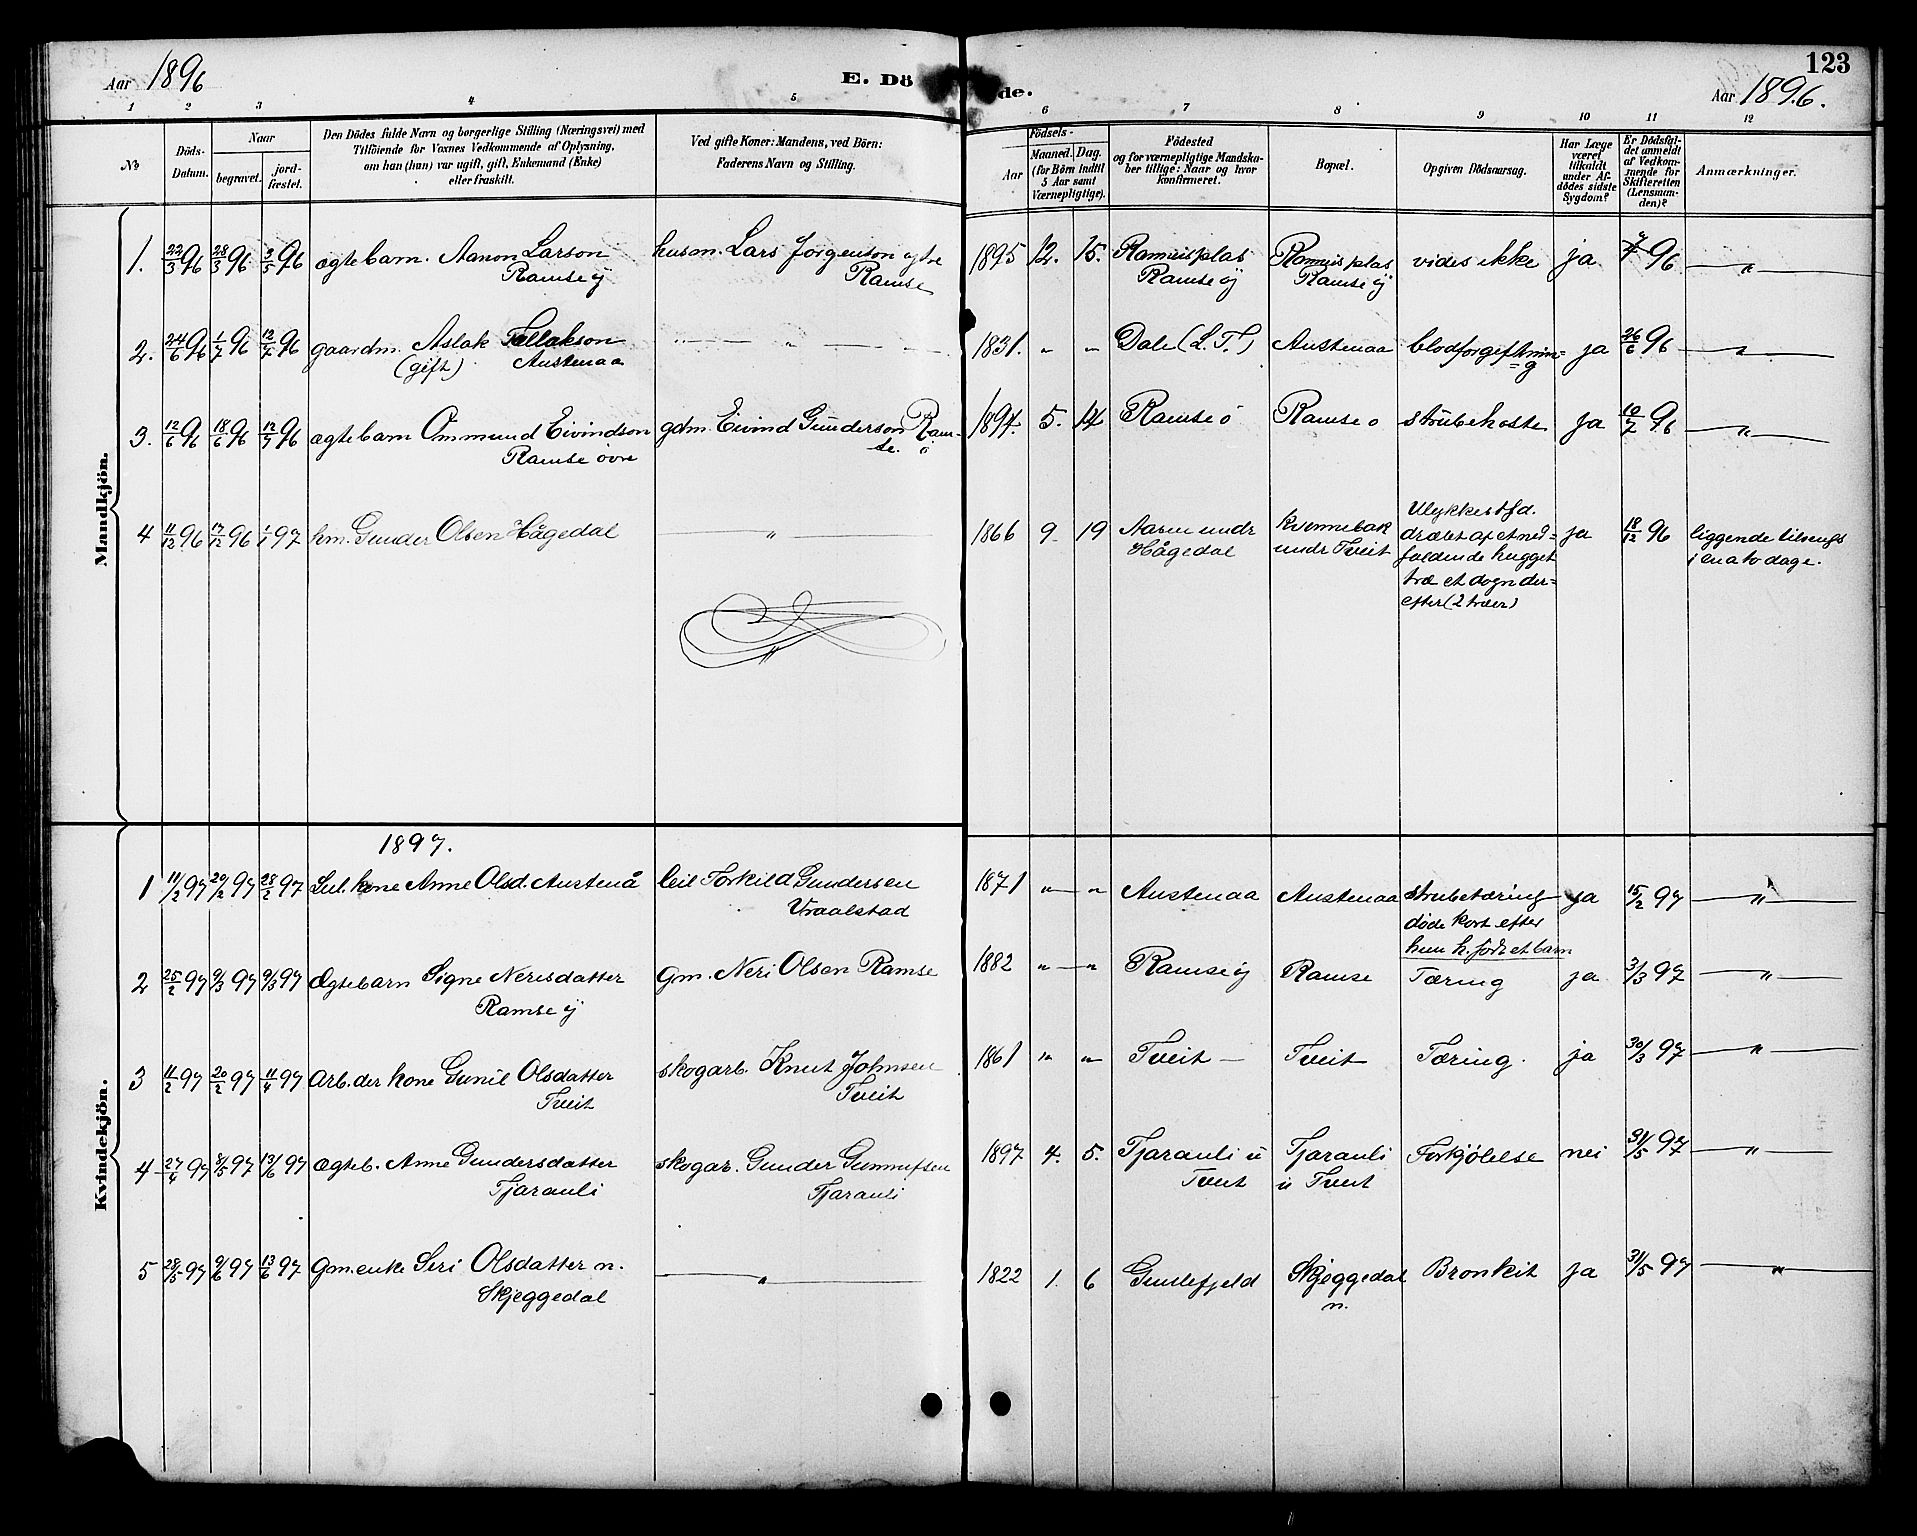 Aar 1896
E. Dö
de.
123
Aar 1896.
1 2 3 4 5 6 7 8 9 10 11 12
No
Döds-Datum.
Naar
begravet.
jord-fæstet.
Den Dödes fulde Navn og borgerlige Stilling (Næringsvei) med
Tilföiende for Voxnes Vedkommende af Oplysning,
om han (hun) var ugift, gift, Enkemand (Enke)
eller fraskilt.
Ved gifte Koner: Mandens, ved Börn:
Faderens Navn og Stilling.
Födsels-
Aar
Maaned. Dag.
(for Börn indtil
5 Aar samt
Værnepligtige).
Födested
og for værnepligtige Mandska-
ber tillige: Naar og hvor
konfirmeret.
Bopæl.
Opgiven Dödsaarsag.
Har Læge
været
tilkaldt
under Af-
dödes sidste
Sygdom?
Er Dödsfal-
det anmeldt
af Vedkom-
mende for
Skifteretten
(Lensman-
den)?
Anmærkninger.
Mandkjön.
1. 22/3 96 28/3 96 3/5 96 ægtebarn. Aanon Larson husm. Lars Jorgenson ytre 1895 12. 15. Ramseplas vides ikke ja 96 "
Ramse ÿ Ramse Ramse ÿ Ramse ÿ
2. 24/6 96 1/7 96 12/7 96 gaardm. Aslak Tellakson " 1831. " " Dale (L. T.) Austenaa blodforgeftnin= ja 26/6 96 "
(gift) Austenaa =g
3. 12/6 96 18/6 96 12/7 96 ægtebarn Ommund Eivindson gdm. Eivind Gunderson Ram- 1894. 5. 14 Ramse ö Ramse o strubehoste ja 10/7 96 "
Ramse ovre se. ö
4 11/12 96 17/12 96 1/1 97 hm. Gunder Olsen Hågedal " 1866 9 19 Aaren undr kvennebak Ulykkestfd. ja 18/12 96 liggende tilsengs
Hågedal undr Tveit dræbt af et ned= i en a to dage.
faldende hugget
træ et dogn der=
efter (2 træer)
Kvindekjön.
1897.
1 11/2 97 20/2 97 28/2 97 kone Anne Olsd. Austenå leil Torkild Gundersen 1871 " " Austenaa Austenaa strubetæring ja 15/2 97 "
Vraalstad døde kort efter
hun h. født et barn
2 25/2 97 9/3 97 9/3 97 Ægtebarn Signe Nerisdatter gm. Neri Olsen Ramse 1882 " " Ramse ÿ Ramse Tæring ja 3/3 97 "
Ramse ÿ
3 11/2 97 20/2 97 11/4 97 Arb.der kone Gunil Olsdatter skogarb. Knut Johnsen 1861 " " Tveit Tveit Tæring. ja 30/3 97 "
Tveit Tveit
4 27/4 97 8/5 97 13/6 97 ægteb. Anne Gundersdatter skogar. Gunder Gunnufsen 1897 4. 5. Tjarauli u Tjarauli Forkjölelse nei 31/5 97 "
Tjarauli Tjarauli Tveit u Tveit
5 28/5 97 9/6 97 13/6 97 Gm. enke Seri Olsdatter n. " 1822 1. 6 Skjeggedal Bronkit ja 31/5 97 "
Skjeggedal n.